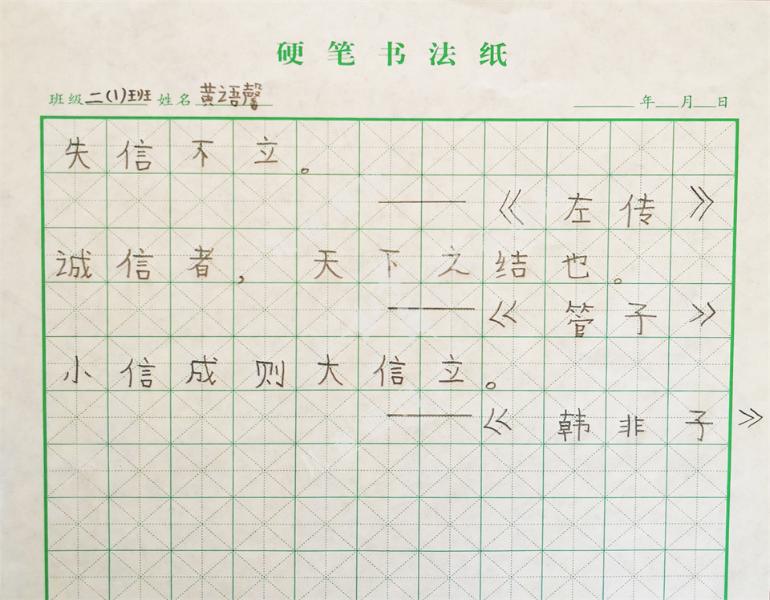 硬笔书法纸
班级 二(1)班 姓名 黄语馨 年 月 日
失信不立。
——《左传》
诚信者，天下之结也。
——《管子》
小信成则大信立。
——《韩非子》